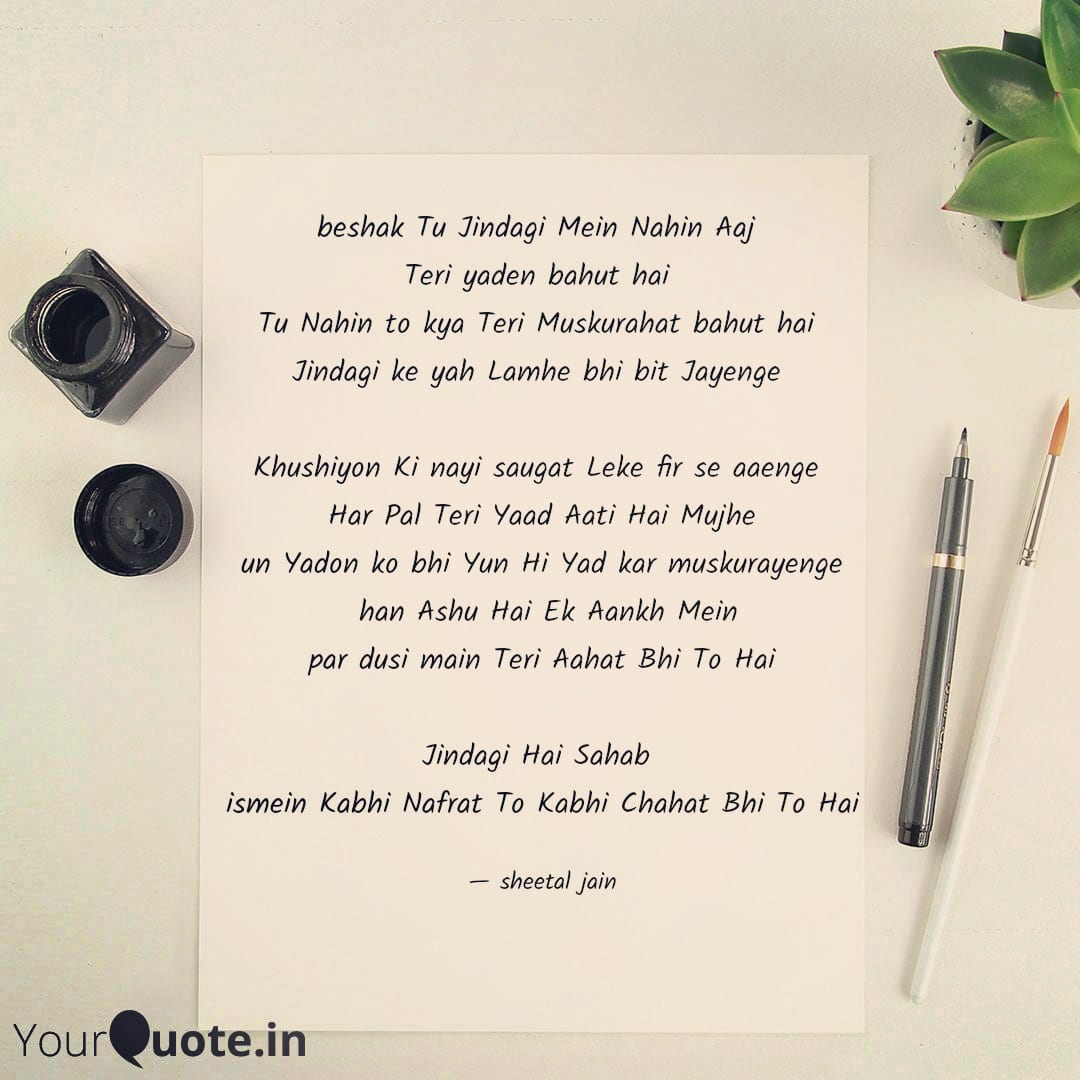 beshak Tu Jindagi Mein Nahin Aaj
Teri yaden bahut hai
Tu Nahin to kya Teri Muskurahat bahut hai
Jindagi ke yah Lamhe bhi bit Jayenge
Khushiyon Ki nayi saugat Leke fir se aaenge
Har Pal Teri Yaad Aati Hai Mujhe
un Yadon ko bhi Yun Hi Yad kar muskurayenge
han Ashu Hai Ek Aankh Mein
par dusi main Teri Aahat Bhi To Hai
Jindagi Hai Sahab
ismein Kabhi Nafrat To Kabhi Chahat Bhi To Hai
— sheetal jain
YourQuote.in